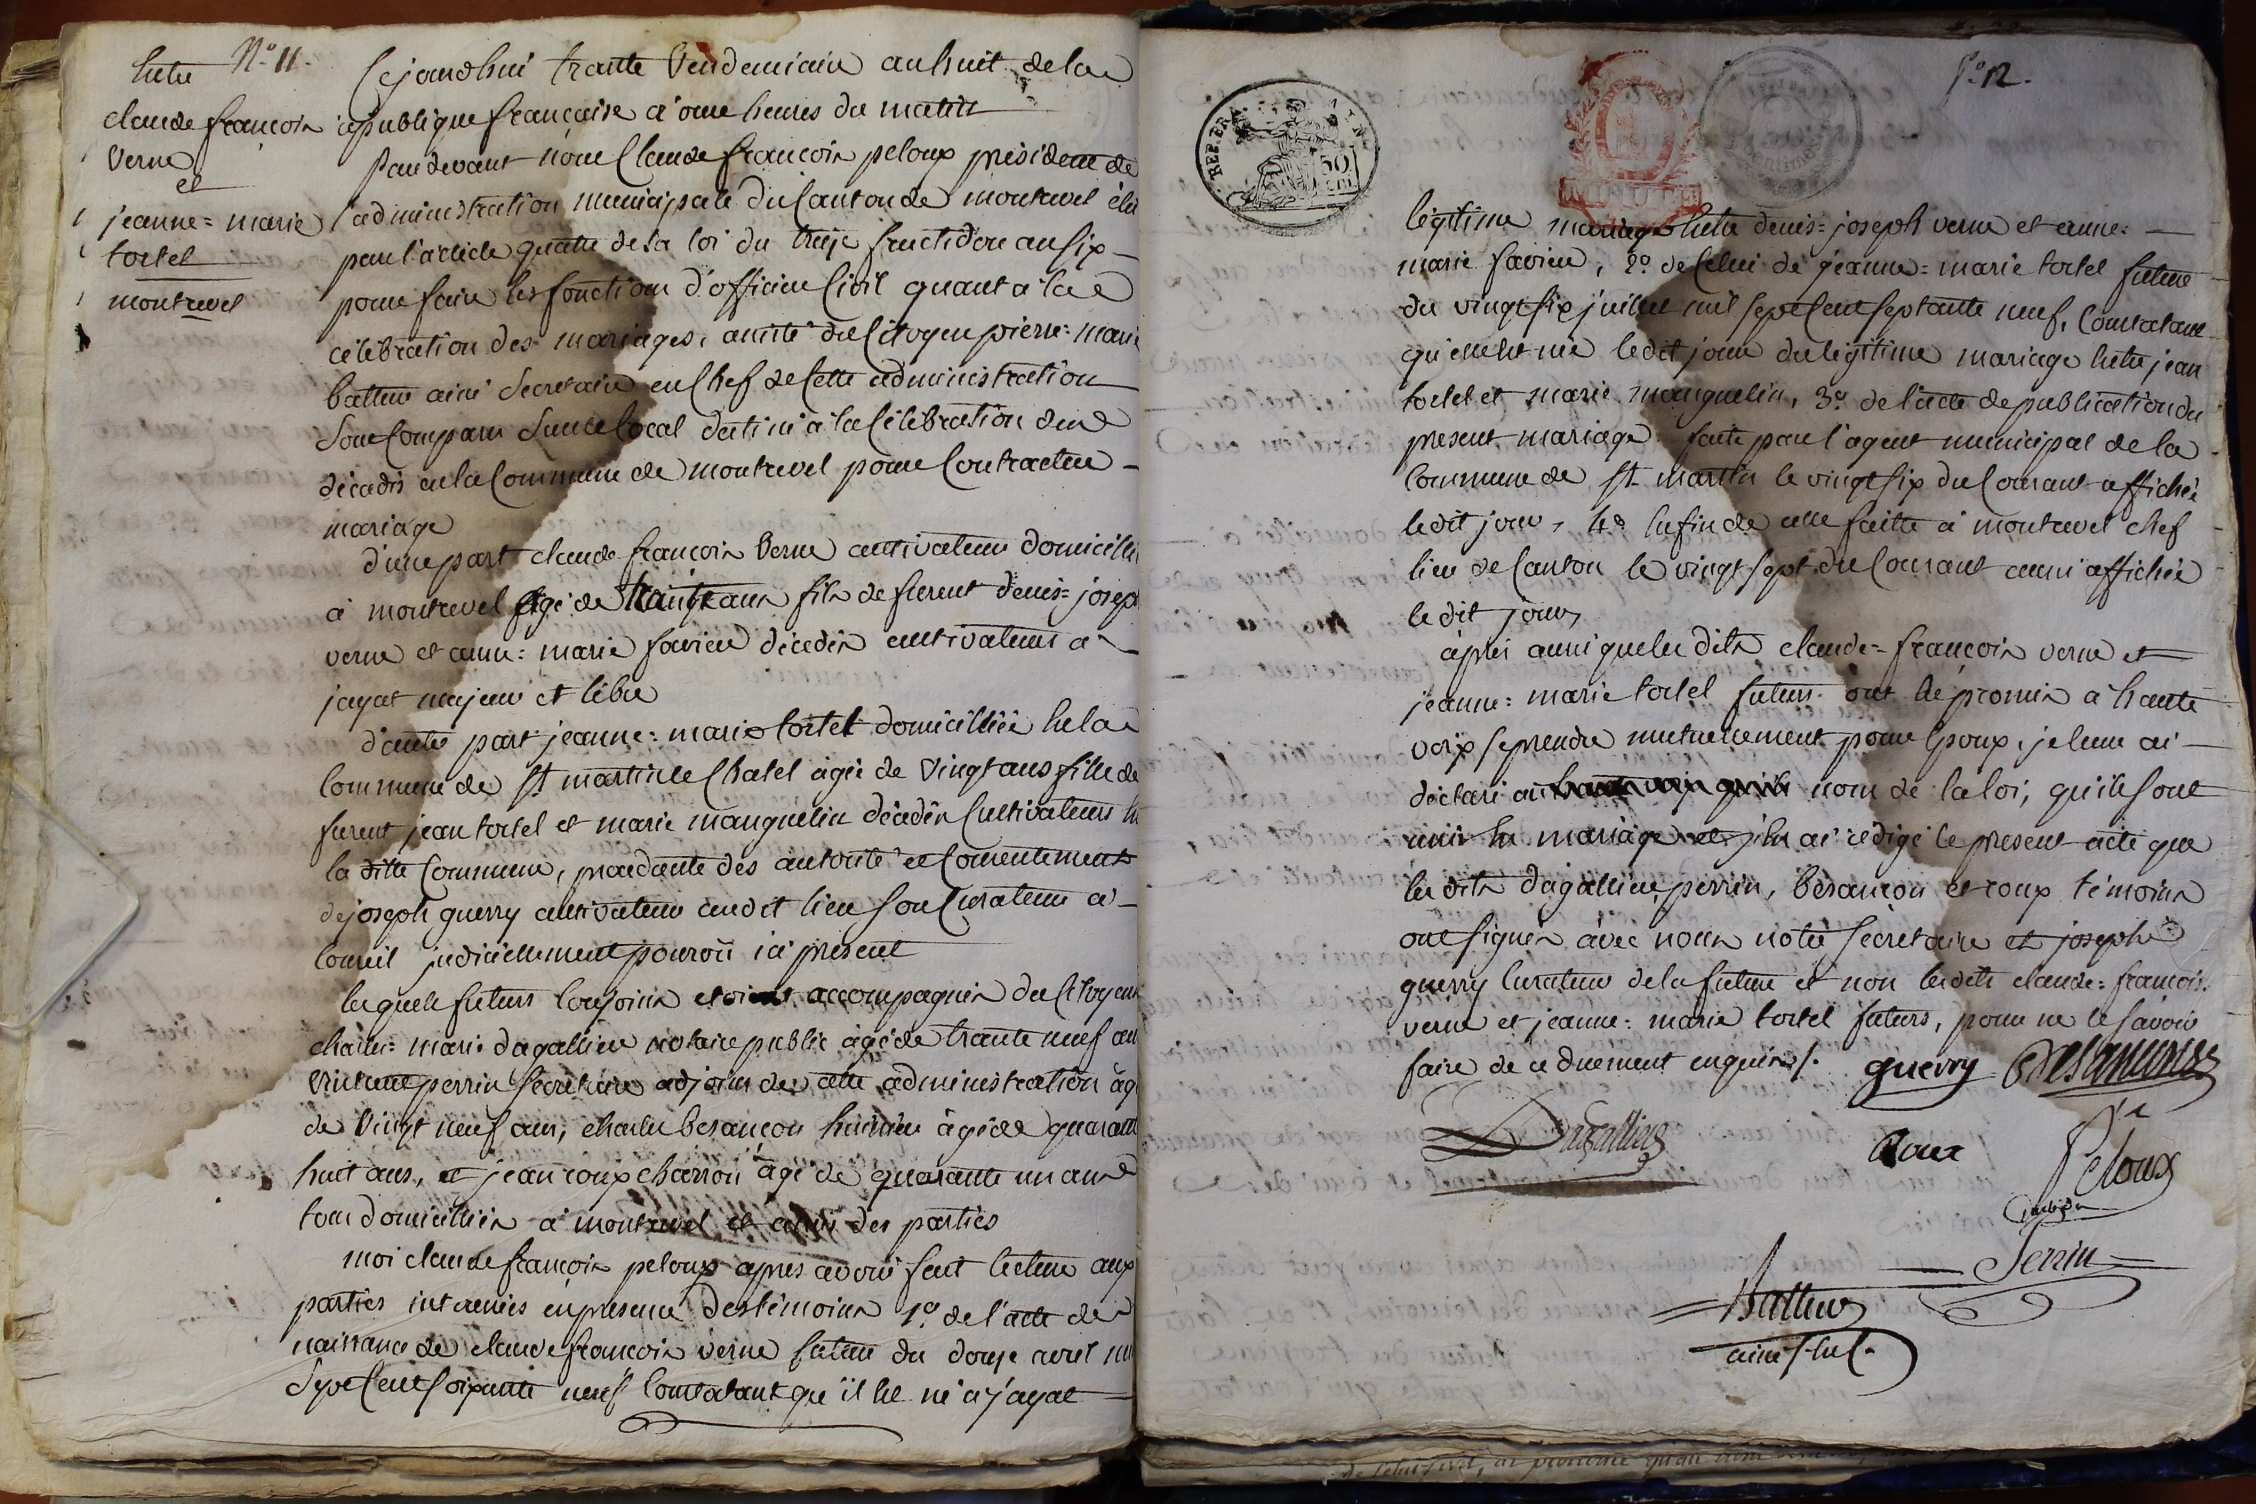 N.º 11.
Entre
claude françois
verne
et
jeanne = marie
tortel
montrevel
Cejourdhui trante Vendemiaire an huit de la
republique française a onze heures du matin
Pardevant nous Claude françois peloux président de
l'administration municipale du Canton de montrevel élu
par l'article quatre de la loi du treize fructidor an six
pour faire les fonctions d'officier Civil quant a la
célébration des mariages, assité du Citoyen pierre = marie
battur ainé Secretaire en Chef de Cette administration
Sont Comparus Sur le local destiné à la Célébration des
décadis en la Commune de montrevel pour Contracter
mariage
d'une part claude françois Verne cultivateur domicilié
à montrevel agé de trante ans fils de furent denis = joseph
verne et anne = marie favier décédés cultivateurs à
jayat majeur et libre
d'autre part jeanne = marie tortel domiciliée en la
Commune de St martin le Chatel agée de Vingt ans fille de
furent jean tortel et marie manguelin décédés Cultivateurs en
la ditte Commune, procédante des autorité et Consentement
de joseph guerry cultivateur audit lieu son Curateur a
Conseil judiciellement pourvu ici présent
lesquels futurs Conjoins etoient accompagnés du Citoyens
charles = marie dagallier notaire public agé de trante neuf ans
Vincent perrin Secretaire adjoint de cette administration agé
de Vingt neuf ans, charles besançon huissier âgé de quarante
huit ans, et jean roux charron âgé de quarante un ans
tous domiciliés a montrevel et amis des parties
moi claude françois peloux apres avoir fait lecture aux
parties interessées en presence des témoins 1.º de l'acte de
naissance de claude françois verne futur du douze avril mil
Sept Cent Soixante neuf Constatant qu'il est né a jayat
REP. FRA.
50
MINUTE
f.º 12.
légitime mariage Entre denis = joseph verne et anne =
marie favier, 2.º de Celui de jeanne = marie tortel future
du vingt six juillet mil Sept Cent Septante neuf, Constatant
qu'elle est née ledit jour du légitime mariage Entre jean
tortel et marie manguelin, 3.º de l'acte de publication du
present mariage faite par l'agent municipal de la
Commune de St martin le vingt six du Courant affichée
ledit jour, 4.º Enfin de celle faitte à montrevel chef
lieu de Canton le vingt sept du Courant aussi affichée
le dit jour,
après aussi que les dits claude = françois verne et
jeanne = marie tortel futurs ont Eté promis à haute
voix se prendre mutuellement pour Epoux, je leur ai
déclaré au nom de la loi, qu'ils sont
unis En mariage et j'en ai rédigé le present acte que
les dits dagallier, perrin, besançon et roux témoins
ont signés avec nous notre secretaire et joseph
guerry Curateur de la future et non lesdits claude = françois
verne et jeanne = marie tortel futurs, pour ne le savoir
faire de ce duement enquis /.
guerry
Besançon
Dagallier
Roux
Peloux
Perrin
Battur
ainé